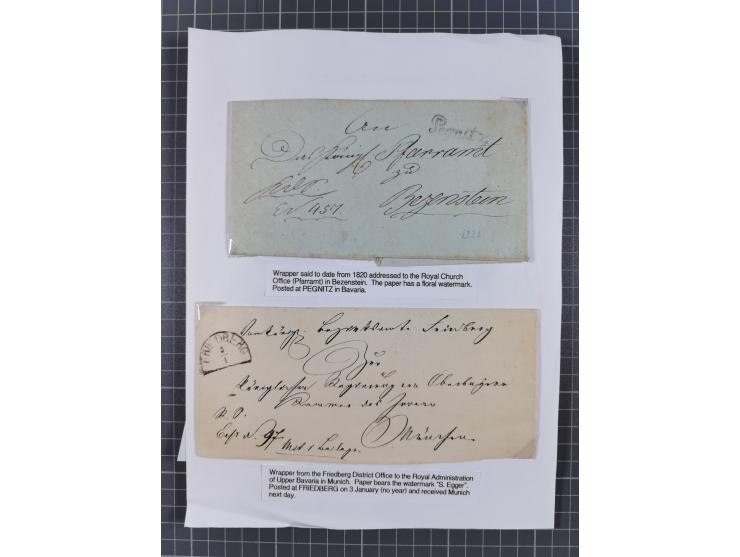 An
Pegnitz
Das Königl Pfarramt
zu
Bezenstein
Ex 451.
Wrapper said to date from 1820 addressed to the Royal Church
Office (Pfarramt) in Bezenstein. The paper has a floral watermark.
Posted at PEGNITZ in Bavaria.
FRIEDBERG
3/1
Vom königl. Bezirksamte Friedberg
Zur
Königlichen Regierung von Oberbayern
Kammer des Innern
München.
Mit 1 Beilage.
Wrapper from the Friedberg District Office to the Royal Administration
of Upper Bavaria in Munich. Paper bears the watermark "S. Egger".
Posted at FRIEDBERG on 3 January (no year) and received Munich
next day.